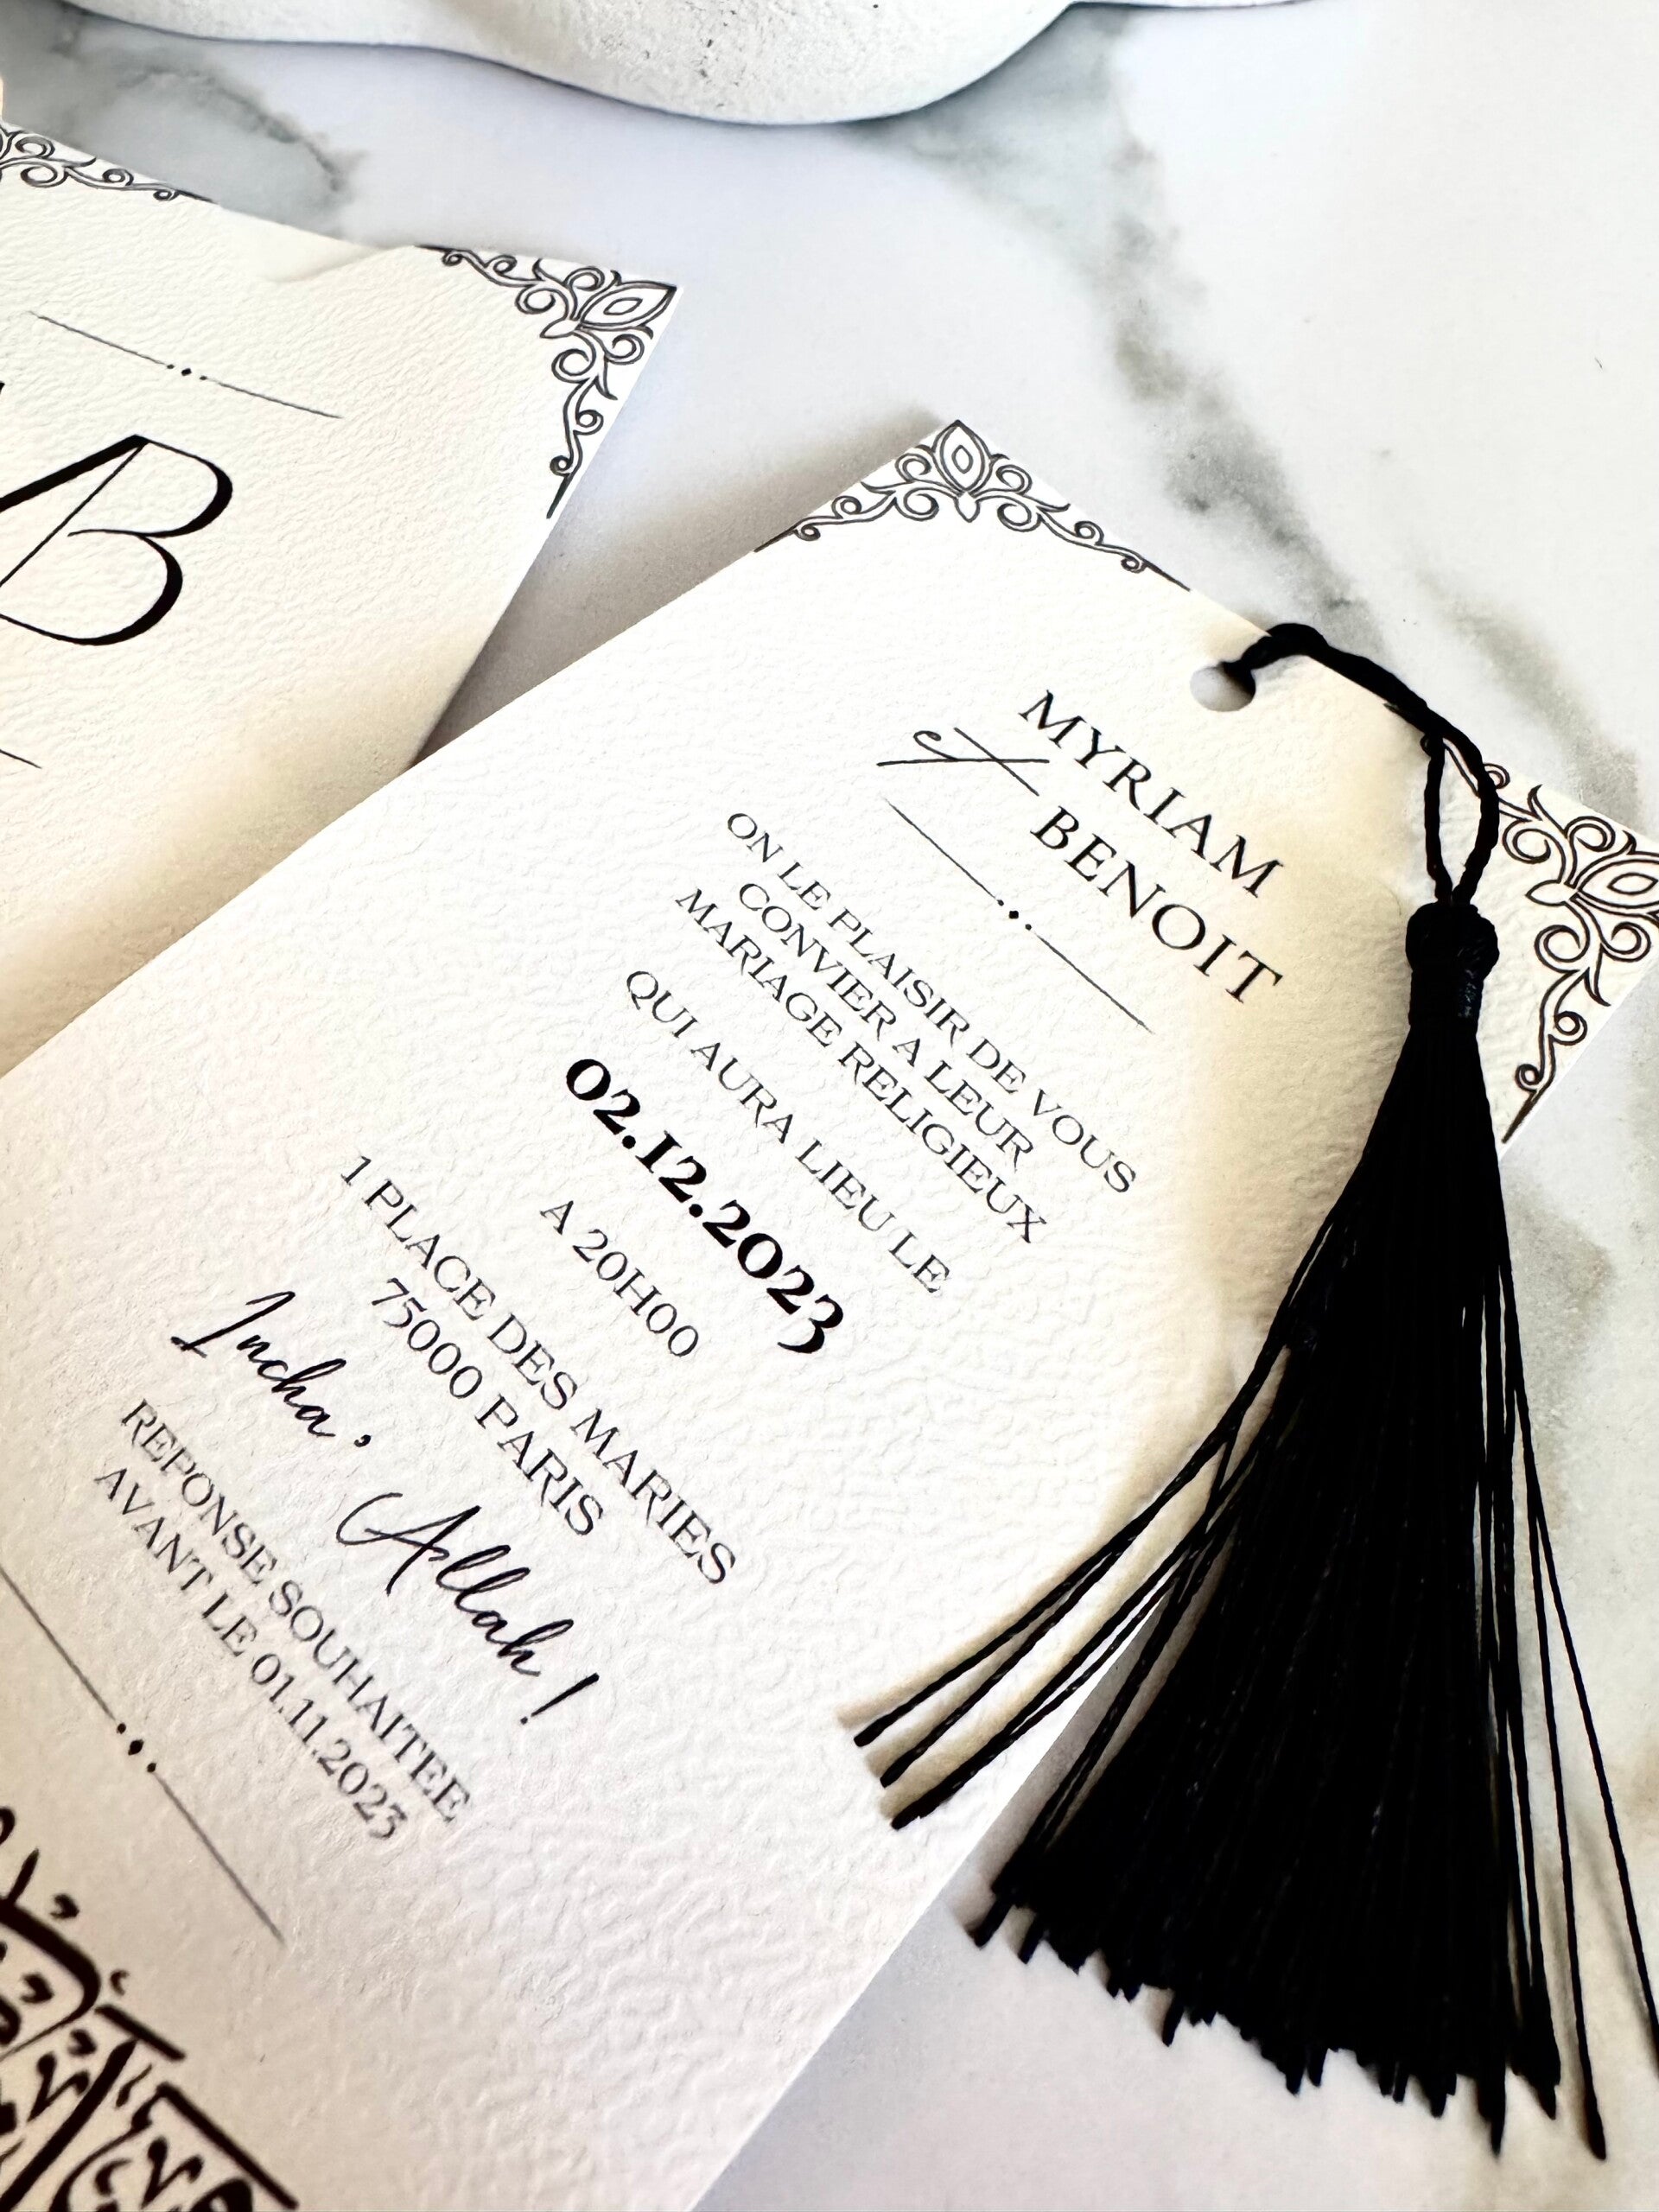 B
MYRIAM
et BENOIT
ON LE PLAISIR DE VOUS
CONVIER A LEUR
MARIAGE RELIGIEUX
QUI AURA LIEU LE
02.12.2023
A 20H00
1 PLACE DES MARIES
75000 PARIS
Incha' Allah !
REPONSE SOUHAITEE
AVANT LE 01.11.2023